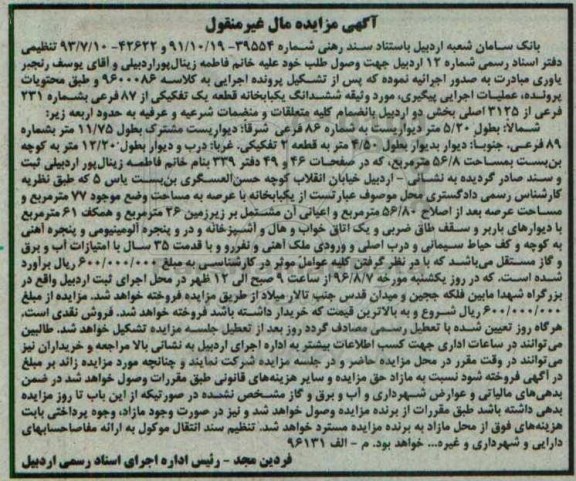 آگهی مزایده مال غیرمنقول
بانک سامان شعبه اردبیل باستناد سند رهنی شماره ۳۹۵۵۴- ۹۱/۱۰/۱۹ و ۴۲۶۲۲- ۹۳/۷/۱۰ تنظیمی
دفتر اسناد رسمی شماره ۱۲ اردبیل جهت وصول طلب خود علیه خانم فاطمه زینال‌پوراردبیلی و آقای یوسف رنجبر
یاوری مبادرت به صدور اجرائیه نموده که پس از تشکیل پرونده اجرایی به کلاسه ۹۶۰۰۰۸۶ و طبق محتویات
پرونده، عملیات اجرایی پیگیری، مورد وثیقه ششدانگ یکبابخانه قطعه یک تفکیکی از ۸۷ فرعی بشماره ۲۳۱
فرعی از ۳۱۲۵ اصلی بخش دو اردبیل بانضمام کلیه متعلقات و منضمات شرعیه و عرفیه به حدود اربعه زیر:
شمالاً: بطول ۵/۲۰ متر دیواریست به شماره ۸۶ فرعی شرقاً: دیواریست مشترک بطول ۱۱/۷۵ متر بشماره
۸۹ فرعی، جنوباً: دیوار بدیوار بطول ۴/۵۰ متر به قطعه ۲ تفکیکی. غرباً: درب و دیوار بطول ۱۲/۲۰ متر به کوچه
بن‌بست بمساحت ۵۶/۸ مترمربع، که در صفحات ۴۶ و ۴۹ دفتر ۳۳۹ بنام خانم فاطمه زینال‌پور اردبیلی ثبت
و سند صادر گردیده به نشانی - اردبیل خیابان انقلاب کوچه حسن‌العسگری بن‌بست یاس ۵ که طبق نظریه
کارشناس رسمی دادگستری محل موصوف عبارتست از یکبابخانه با عرصه به مساحت وضع موجود ۷۷ مترمربع و
مساحت عرصه بعد از اصلاح ۵۶/۸۰ مترمربع و اعیانی آن مشتمل بر زیرزمین ۲۶ مترمربع و همکف ۶۱ مترمربع
با دیوارهای باربر و سقف طاق ضربی و یک اتاق خواب و هال و آشپزخانه و در و پنجره آلومینیومی و پنجره آهنی
به کوچه و کف حیاط سیمانی و درب اصلی و ورودی ملک آهنی و نفررو و با قدمت ۳۵ سال با امتیازات آب و برق
و گاز مستقل می‌باشد که با در نظر گرفتن کلیه عوامل موثر در کارشناسی به مبلغ ۶۰۰/۰۰۰/۰۰۰ ریال برآورد
شده است. که در روز یکشنبه مورخه ۹۶/۸/۷ از ساعت ۹ صبح الی ۱۲ ظهر در محل اجرای ثبت اردبیل واقع در
بزرگراه شهدا مابین فلکه ججین و میدان قدس جنب تالار میلاد از طریق مزایده فروخته خواهد شد. مزایده از مبلغ
۶۰۰/۰۰۰/۰۰۰ ریال شروع و به بالاترین قیمت که خریدار داشته باشد فروخته خواهد شد. فروش نقدی است،
هرگاه روز تعیین شده با تعطیل رسمی مصادف گردد روز بعد از تعطیل جلسه مزایده تشکیل خواهد شد. طالبین
می‌توانند در ساعات اداری جهت کسب اطلاعات بیشتر به اداره اجرای اردبیل به نشانی بالا مراجعه و خریداران نیز
می‌توانند در وقت مقرر در محل مزایده حاضر و در جلسه مزایده شرکت نمایند و چنانچه مورد مزایده زائد بر مبلغ
در آگهی فروخته شود نسبت به مازاد حق مزایده و سایر هزینه‌های قانونی طبق مقررات وصول خواهد شد در ضمن
بدهی‌های مالیاتی و عوارض شهرداری و آب و برق و گاز مشخص نشده در صورتیکه از این باب تا روز مزایده
بدهی داشته باشد طبق مقررات از برنده مزایده وصول خواهد شد و نیز در صورت وجود مازاد، وجوه پرداختی بابت
هزینه‌های فوق از محل مازاد به برنده مزایده مسترد خواهد شد. تنظیم سند انتقال موکول به ارائه مفاصاحسابهای
دارایی و شهرداری و غیره... خواهد بود. م - الف ۹۶۱۳۱
فردین مجد - رئیس اداره اجرای اسناد رسمی اردبیل